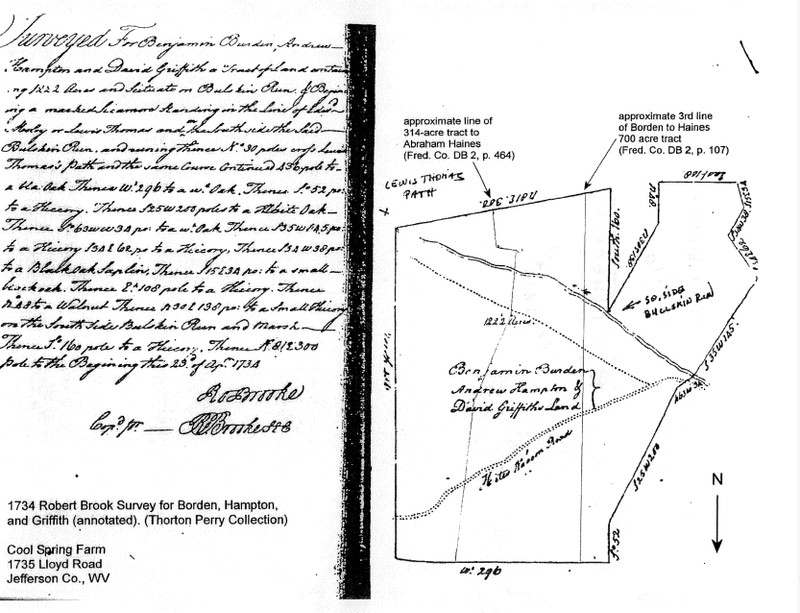 Surveyed For Benjamin Burden, Andrew
Hampton and David Griffith a Tract of Land contain
ng 1222 Acres and Situate on Bulskin Run. & Begin
ing a marked Sicamore Standing in the Line of
or Lewis Thomas and on the South side the Said
Bullskin Run. and runing thence N° 30 poles cross Lewis
Thomas's Path and the same Course Continued 436 pole to
a Oak Thence W. 296 to a w. Oak, Thence S. 52 po
to a Hiccory. Thence S25W200 poles to a White Oak
Thence 34 po to a w. Oak Thence S35W145 po:
to a Hiccory 62 po to a Hiccory, Thence 38 po:
to a Black Oak Saplin, Thence 34 po: to a small
Thence E. 108 pole to a Hiccory. Thence
to a Walnut Thence 138 po: to a Small Hiccory
on the South Side Bulskin Run and Marsh
Thence S. 160 pole to a Hiccory, Thence N. 81 E 300
pole to the Begining this 23d of Apr. 1734
Ro Brooke
Cop'd pr — Brooke
1734 Robert Brook Survey for Borden, Hampton,
and Griffith (annotated). (Thorton Perry Collection)
Cool Spring Farm
1735 Lloyd Road
Jefferson Co., WV
approximate line of
314-acre tract to
Abraham Haines
(Fred. Co. DB 2, p. 464)
approximate 3rd line
of Borden to Haines
700 acre tract
(Fred. Co. DB 2, p. 107)
LEWIS THOMAS
PATH
N81E 300.
South 160.
East 108
SO. SIDE
BULLSKIN RUN
1222 Acres
Benjamin Burden
Andrew Hampton &
David Griffiths Land
Hites Waggon Road
S35W145.
S25W200
S. 52
W. 296
N